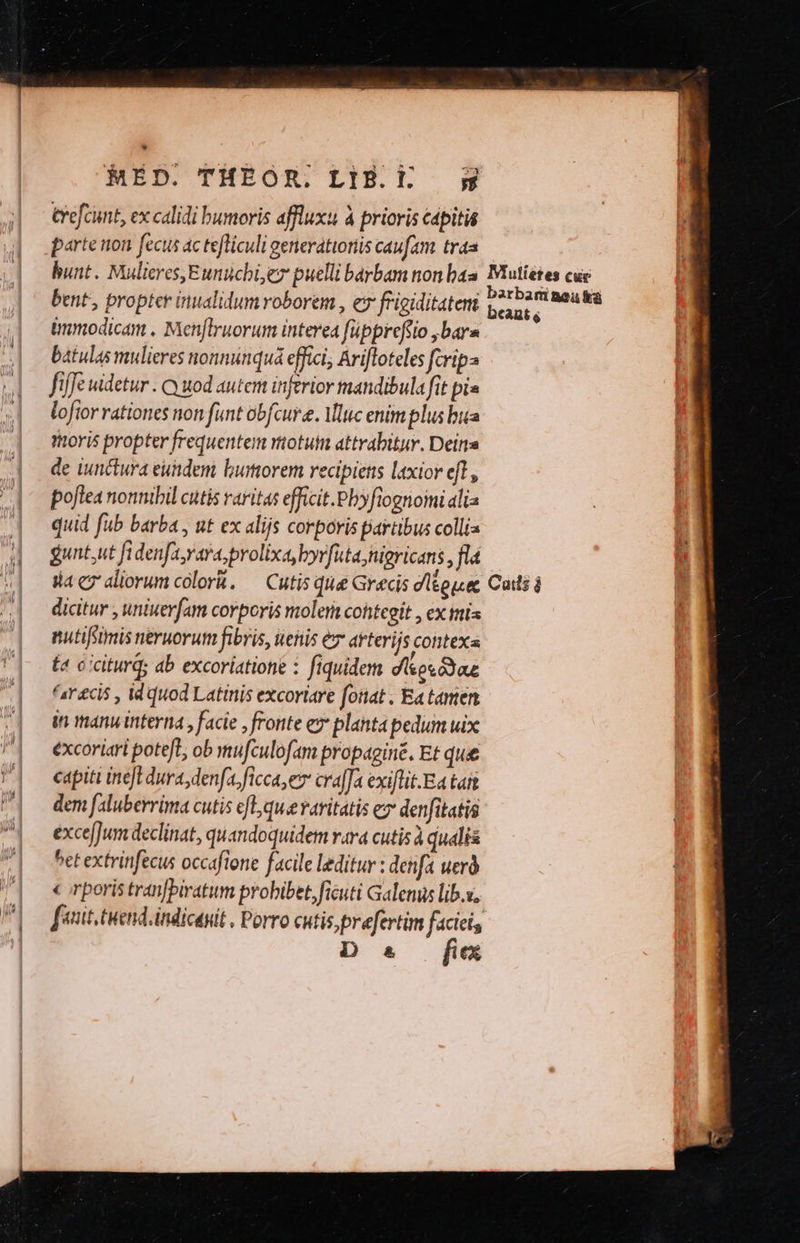 MED. THEOR. LIB. I.
crescunt, ex calidi humoris affluxu à prioris capitis
parte non secus ac testiculi generationis causam tra-
hunt. Mulieres, Eunuchi, & puelli barbam non ha- Mulieres cur
bent, propter inualidum roborem, & frigiditatem barbam non ha
immodicam. Menstruorum interea suppressio, bar- beant.
batulas mulieres nonnunquā effici, Aristoteles scrip-
sisse uidetur. Quod autem inferior mandibula sit pi-
losior rationes non sunt obscuræ. Illuc enim plus hu-
moris propter frequentem motum attrahitur. Dein-
de iunctura eundem humorem recipiens laxior est,
postea nonnihil cutis raritas efficit. Physiognomi ali-
quid sub barba, ut ex alijs corporis partibus colli-
gunt, ut si densa, rara, prolixa, hyrsuta, nigricans, fla
ua & aliorum colorū. Cutis quæ Græcis δέρμα Cutis
dicitur, uniuersam corporis molem contegit, ex mi-
nutissimis neruorum fibris, uenis & arterijs contex-
ta diciturq; ab excoriatione: siquidem δέρεσθαι
Græcis, id quod Latinis excoriare sonat. Ea tamen
in manu interna, facie, fronte & planta pedum uix
excoriari potest, ob musculosam propaginē. Et quæ
capiti inest dura, densa, sicca, & crassa existit. Ea tan
dem saluberrima cutis est, quæ raritatis & densitatis
excessum declinat, quandoquidem rara cutis à quali-
bet extrinsecus occasione facile læditur: densa uerò
corporis transpiratum prohibet, sicuti Galenus lib. 1.
sanit. tuend. indicauit. Porro cutis, præsertim faciei,
D 2 sicx